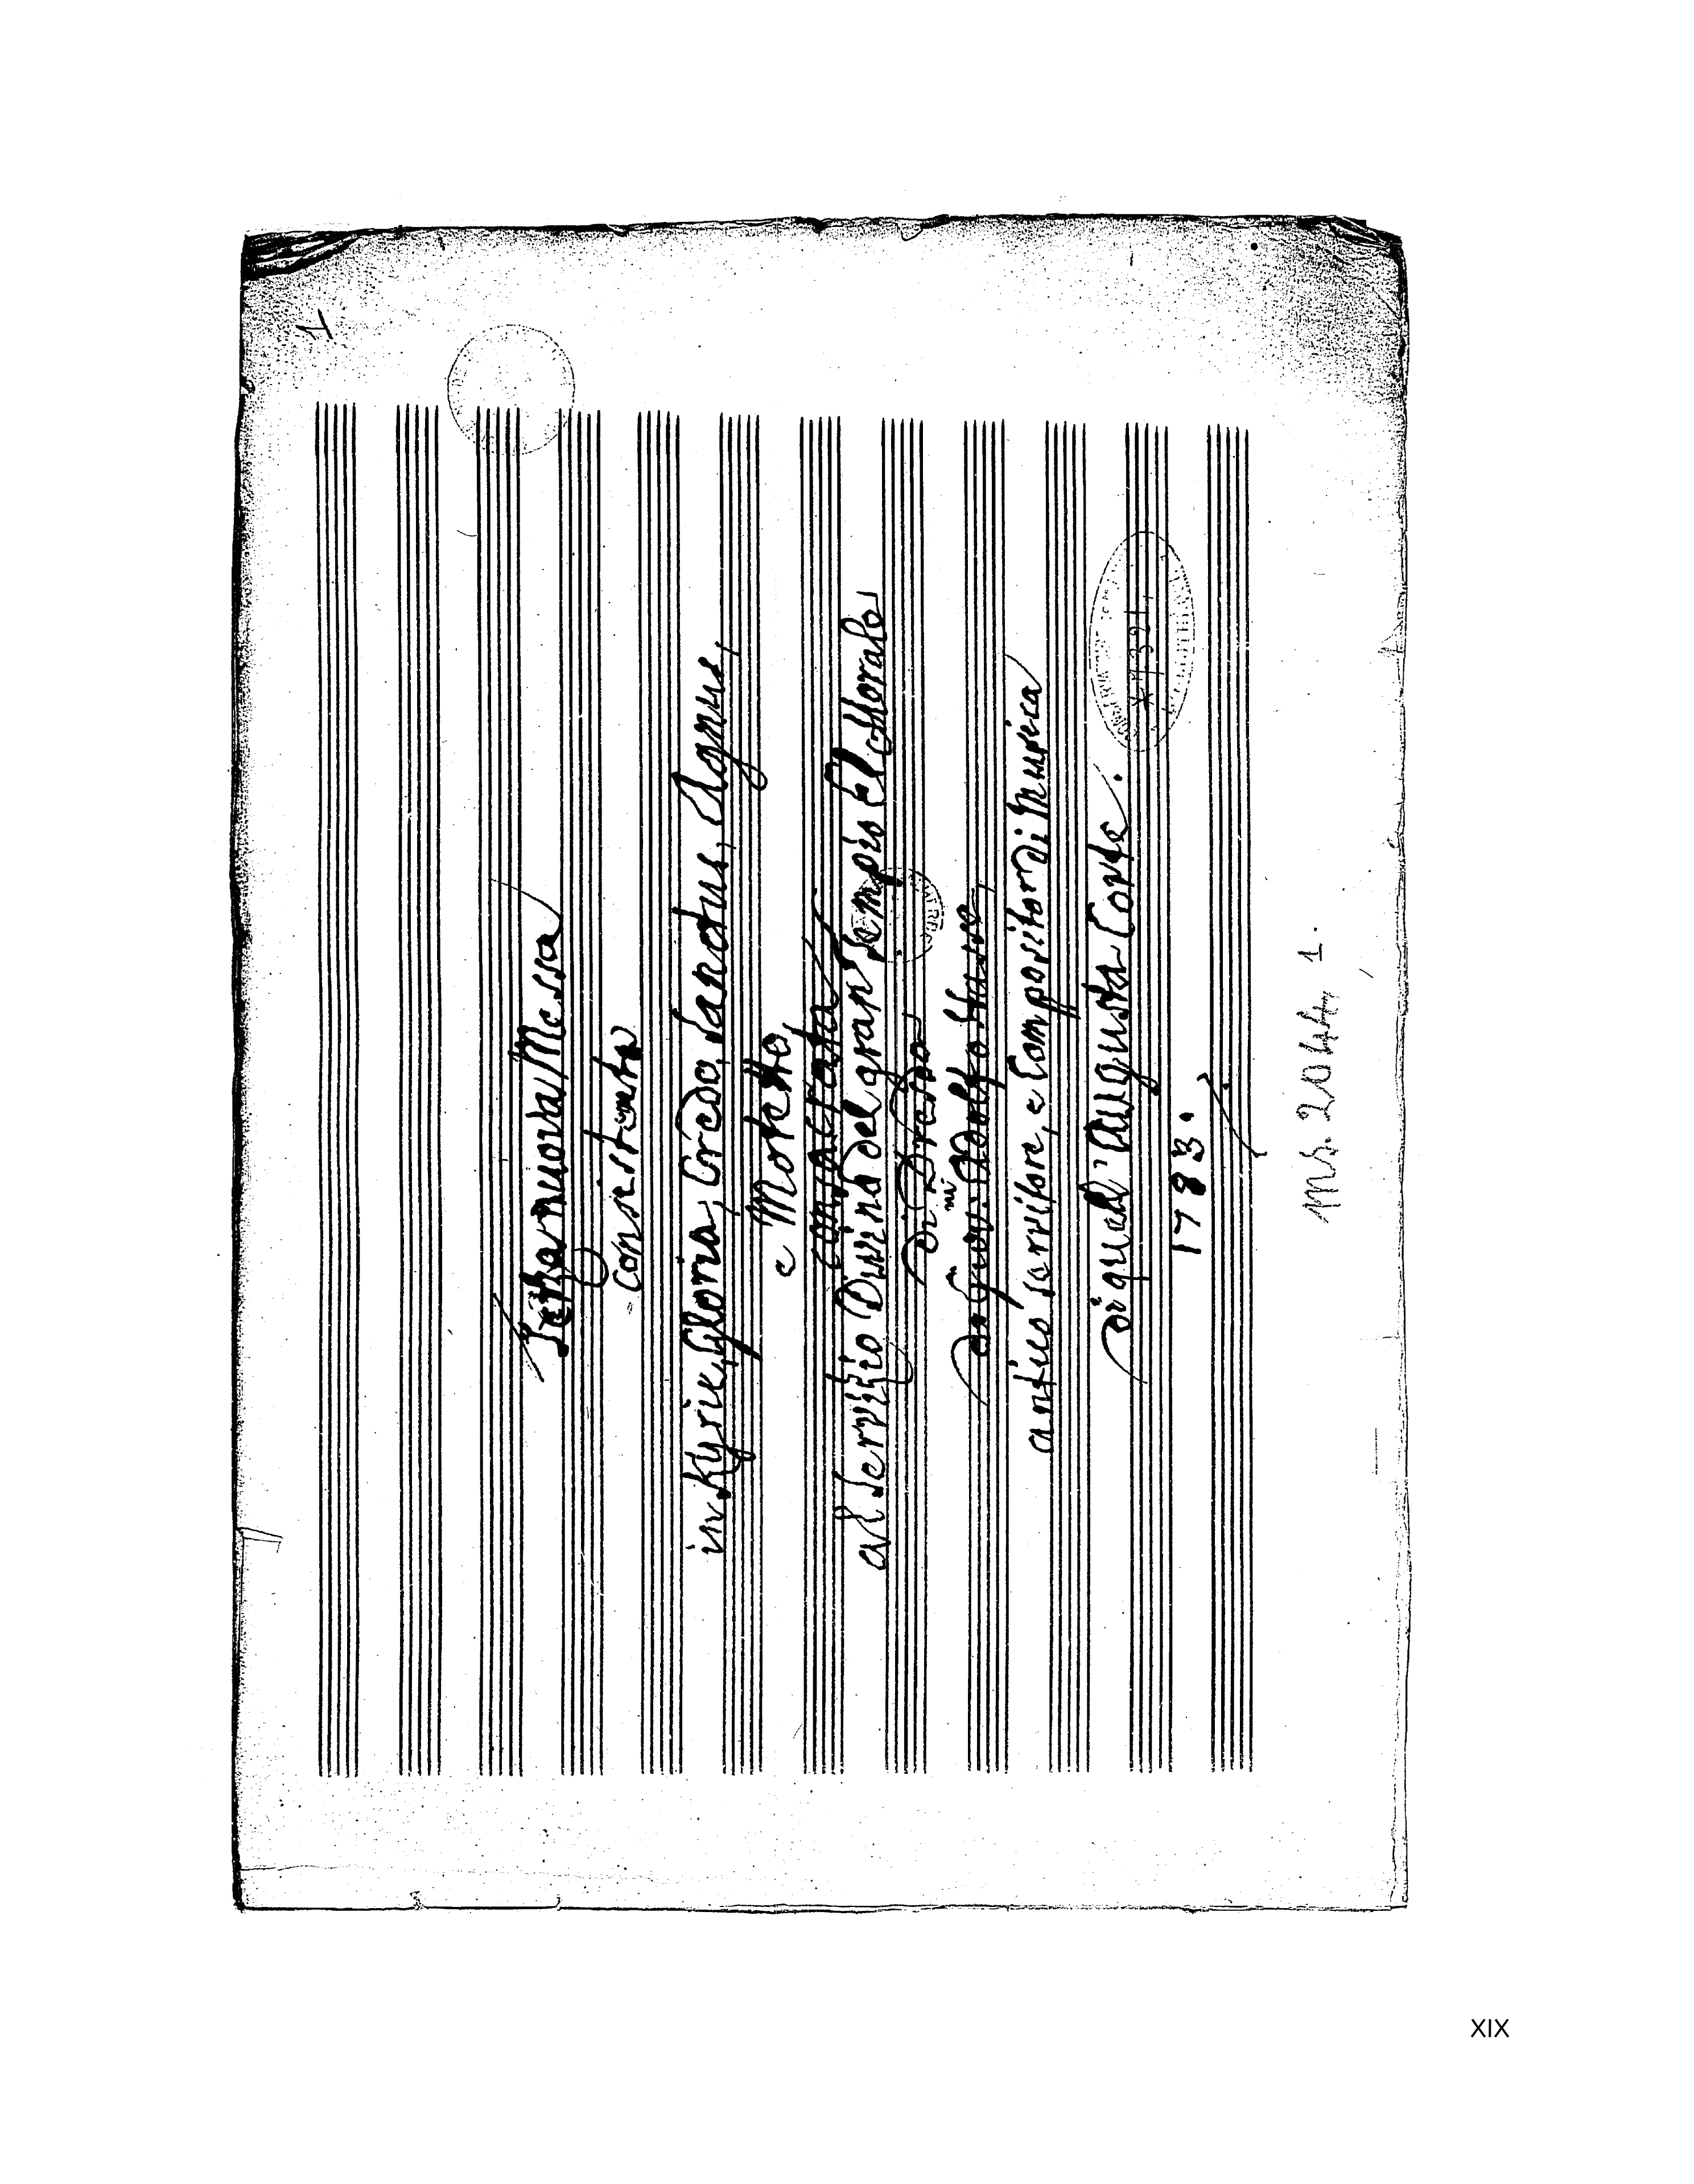 1
Setma nuova Messa
consistente
in Kyrie, Gloria, Credo, Sanctus, Agnus,
e Motetto,
consacrata
al Servizio Divino del gran' Tempio Elettorale
di Dresda
da Giov:ni Adolfo Hasse,
antico servitore, e Compositor di Musica
di quell' Augusta Corte.
1783.
*7321
ms. 2044. 1.
XIX